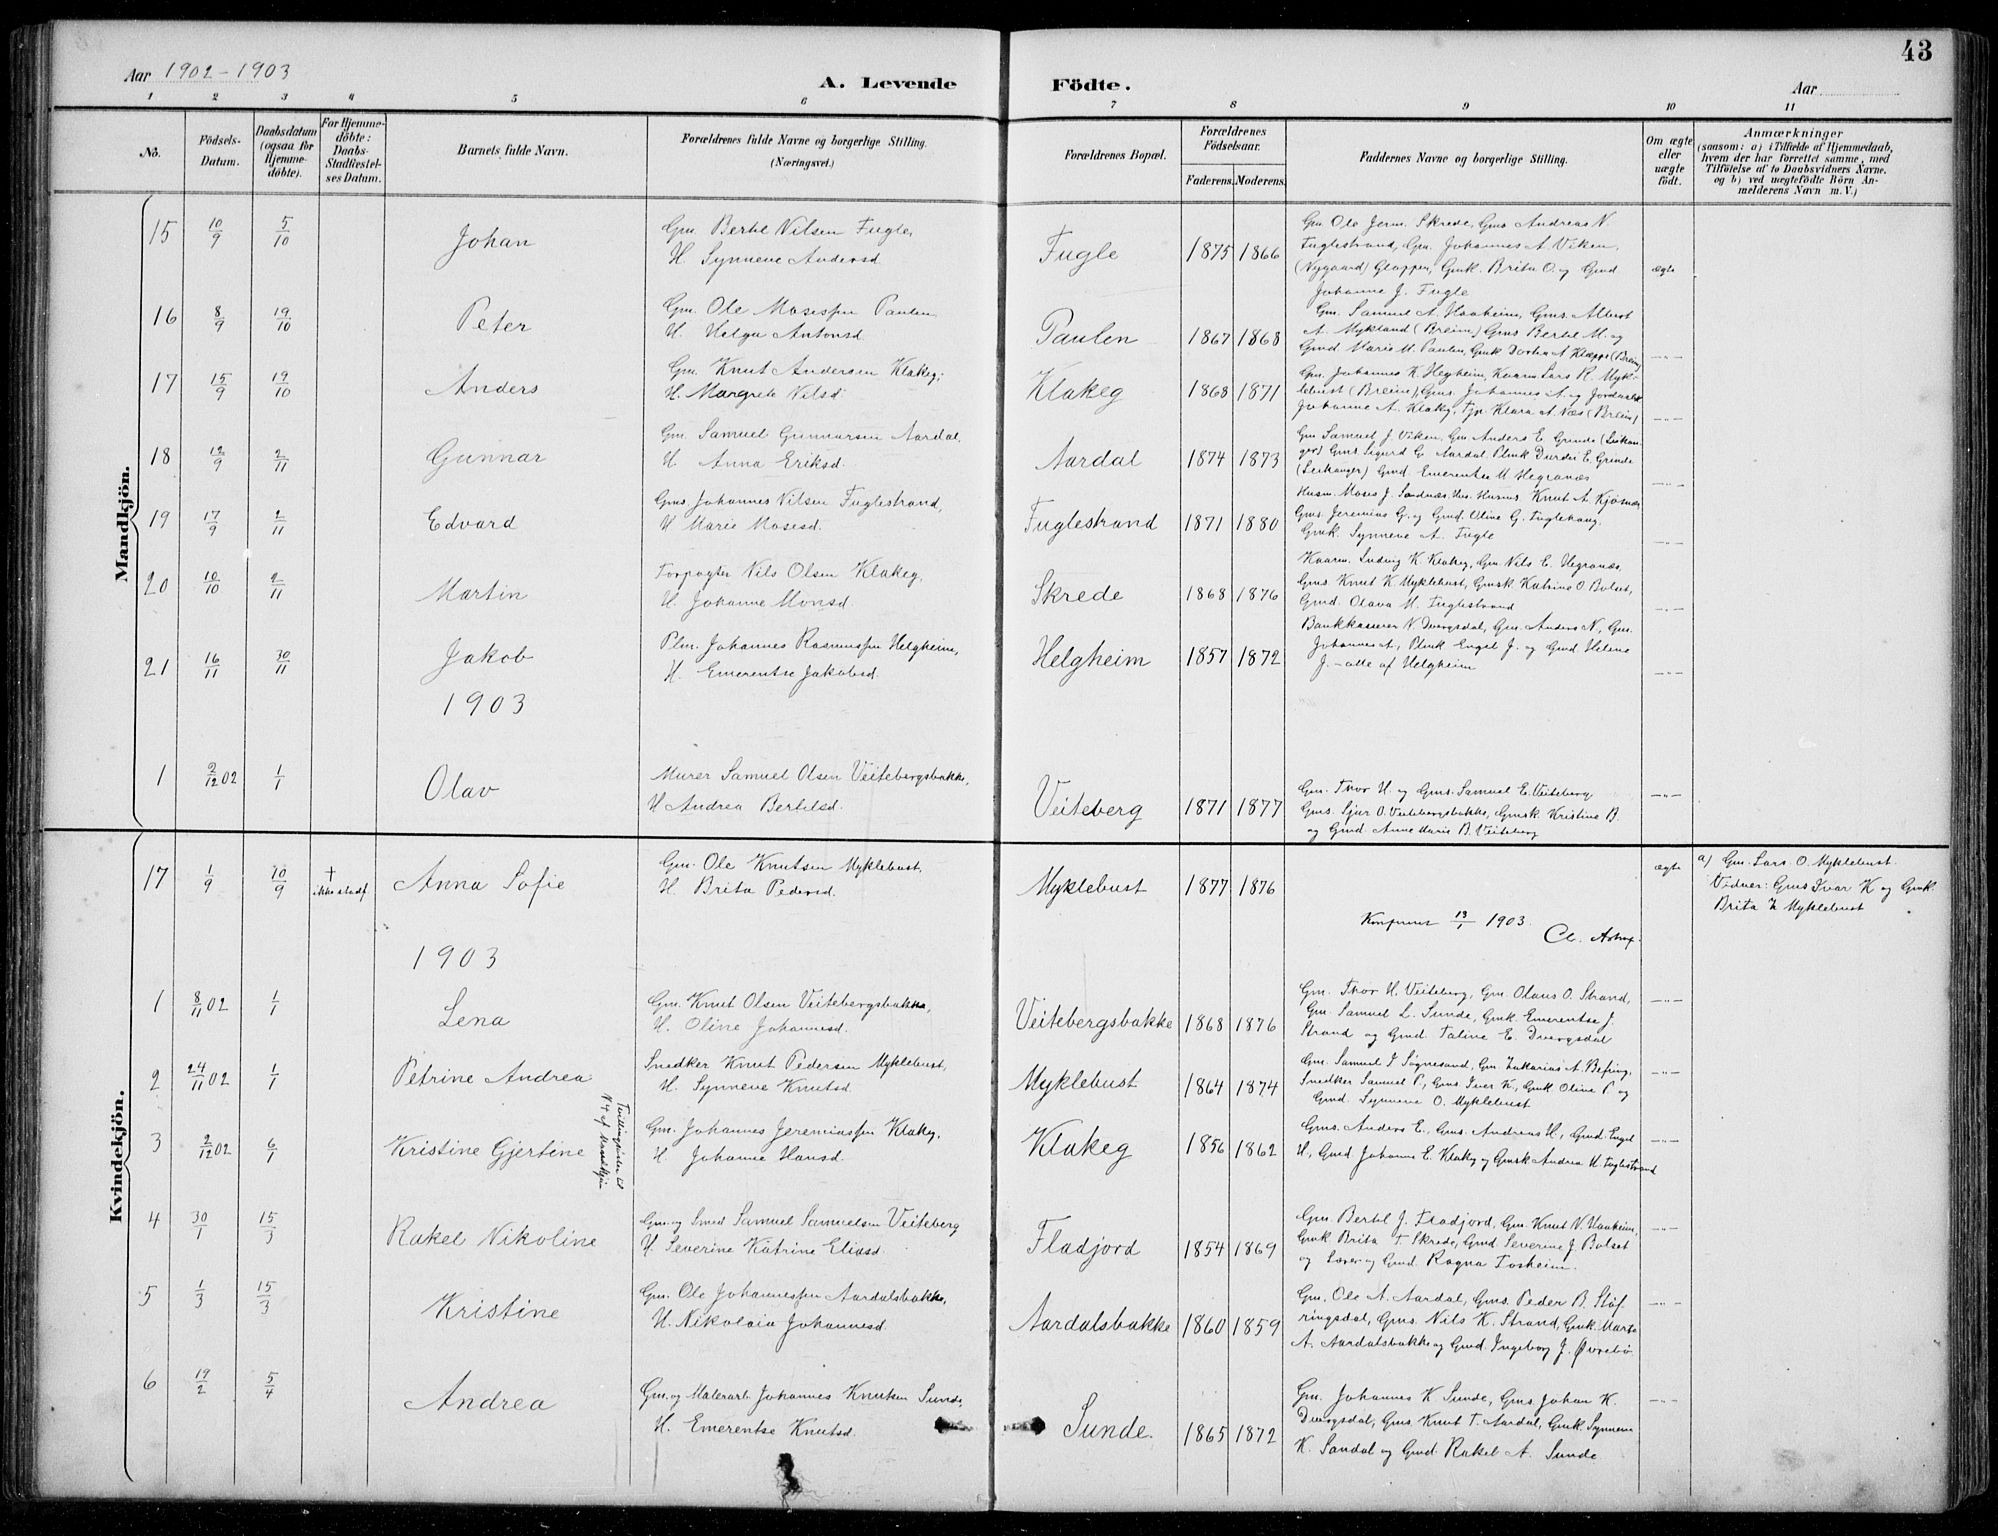 43
Aar 1902-1903
A. Levende Födte.
Aar
1 2 3 4 5 6 7 8 9 10 11
No.
Födsels-Datum.
Daabsdatum (ogsaa for Hjemme-döbte).
For Hjemme-döbte: Daabs-Stadfæstel-ses Datum.
Barnets fulde Navn.
Forældrenes fulde Navne og borgerlige Stilling.
(Næringsvei.)
Forældrenes Bopæl.
Forældrenes Födselsaar.
Faderens. Moderens.
Faddernes Navne og borgerlige Stilling.
Om ægte eller uægte födt.
Anmærkninger
(saasom: a) i Tilfælde af Hjemmedaab, hvem der har forrettet samme, med Tilföielse af to Daabsvidners Navne, og b) ved uægtefödte Börn An-melderens Navn m. V.)
Mandkjön.
15 10/9 5/10 Johan
Gm. Bertel Nilsen Fugle,
H. Synneve Andersd
Fugle 1875 1866
Gm Ole Jerm. Skrede, Gms Andreas N.
Fuglestrand, Gm. Johannes A. Viken,
(Nygaard) Gloppen, Gmk. Brita O. og Gmd
Johanne J. Fugle
ægte
16 8/9 19/10 Peter
Gm. Ole Mosessen Paulen
H. Helga Antonsd
Paulen 1867 1868
Gm. Samuel A. Haaheim, Gms. Albert
A. Mykland (Breim) Gms Bertel M. og
Gmd. Marie M. Paulen, Gmk Dorthea A Kleppe (Breim)
—"—
17 15/9 19/10 Anders
Gm. Knut Andersen Klakeg,
H. Margrete Nilsd
Klakeg 1868 1871
Gm. Johannes K. Hegheim, Kaarm Lars R. Myk-
lebust (Breim), Gms. Johannes A. og
Johanne A. Klakeg, Tjp. Klara A. Næs (Breim)
—"—
18 12/9 2/11 Gunnar
Gm. Samuel Gunnarsen Aardal,
H. Anna Eriksd.
Aardal 1874 1873
Gm Samuel J. Viken, Gm Anders E. Grinde (Leikan-
ger) Gms Sigurd G. Aardal, Plmk Durdei E. Grinde
(Leikanger) Gmd. Emerentse M. Hegranæs
—"—
19 17/9 2/11 Edvard
Gms. Johannes Nilsen Fuglestrand,
H Marie Mosesd.
Fuglestrand 1871 1880
Husm. Moses J. Sandnæs, Husms Knut A. Kjösnæs
Gms. Jeremias G. og Gmd. Oline G. Fuglehaug,
Gmk. Synneve A. Fugle
—"—
20 10/10 2/11 Martin
Forpagter Nils Olsen Klakeg,
H. Johanne Monsd.
Skrede 1868 1876
Kaarm. Ludvig K. Klakeg, Gm Nils E. Hegranæs,
Gms. Knut K. Myklebust, Gmsk Katrine O Bolset,
Gmd. Olava M. Fuglestrand
—"—
21 16/11 30/11 Jakob
Plm. Johannes Rasmussen Helgheim,
H. Emerentse Jakobsd.
Helgheim 1857 1872
Bankkasserer N. Dvergsdal, Gm. Anders N., Gms.
Johannes A., Plmk Engel J. og Gmd Helene
J. — alle af Helgheim
—"—
1903
1 2/12 02 1/1 Olav
Murer Samuel Olsen Veitebergsbakke,
H Andrea Bertelsd.
Veiteberg 1871 1877
Gm. Thor H. og Gms. Samuel E. Veiteberg
Gms. Sjur O. Veitebergsbakke, Gmsk Kristine B.
og Gmd Anne Marie B. Veiteberg
—"—
Kvindekjön.
17 1/9 10/9 † ikke stadf. Anna Sofie
Gm. Ole Knutsen Myklebust,
H. Brita Pedersd.
Myklebust 1877 1876
ægte
a) Gm. Lars O. Myklebust.
Vidner: Gms Ivar K og Gmk.
Brita K Myklebust
13/1 1903.
1903
1 8/11 02 1/1 Lena
Gm. Knut Olsen Veitebergsbakke,
H. Oline Johannesd.
Veitebergsbakke 1868 1876
Gm. Thor H. Veiteberg, Gm. Olaus O. Strand,
Gm. Samuel L. Sunde, Gmk. Emerentse J.
Strand og Gmd Taline E. Dvergsdal
—"—
2 24/11 02 1/1 Petrine Andrea
Snedker Knut Pedersen Myklebust,
H. Synneve Knutsd.
Myklebust 1864 1874
Gm. Samuel I Søgnesand, Gm. Zakarias A. Befring,
Snedker Samuel P., Gms Iver K, Gmk Oline P. og
Gmd. Synneve O. Myklebust
—"—
3 2/12 02 6/1 Kristine Gjertine
Tvillingsøster til
N 4 af Mandkjøn
Gm. Johannes Jeremiassen Klakeg,
H. Johanne Hansd.
Klakeg 1856 1862
Gms. Anders E., Gms. Andreas H., Gmd. Engel
H., Gmd Johanne E. Klakeg og Gmsk Andrea H. Fuglestrand
—"—
4 30/1 15/3 Rakel Nikoline
Gm. og Smed Samuel Samuelsen Veiteberg
H. Severine Katrine Eliasd.
Fladjord 1854 1869
Gm. Bertel J. Fladjord, Gm. Knut N. Haaheim,
Gmk Brita T. Skrede, Gmd Severine J. Bolset
og Lærer og Gmd. Ragna Fosheim.
—"—
5 1/3 15/3 Kristine
Gm. Ole Johannessen Aardalsbakke,
H. Nikolaia Johannesd
Aardalsbakke 1860 1859
Gm. Ole A. Aardal, Gms. Peder B. Støf-
ringsdal, Gms. Nils K. Strand, Gmk. Marte
A. Aardalsbakke og Gmd. Ingeborg J. Øvrebö
—"—
6 19/2 5/4 Andrea
Gm. og Malerarb. Johannes Knutsen Sunde,
H. Emerentse Knutsd.
Sunde. 1865 1872
Gm. Johannes K Sunde, Gms Johan K.
Dvergsdal, Gms. Knut T. Aardal, Gmk Synneve
K. Sandal og Gmd Rakel A. Sunde
—"—